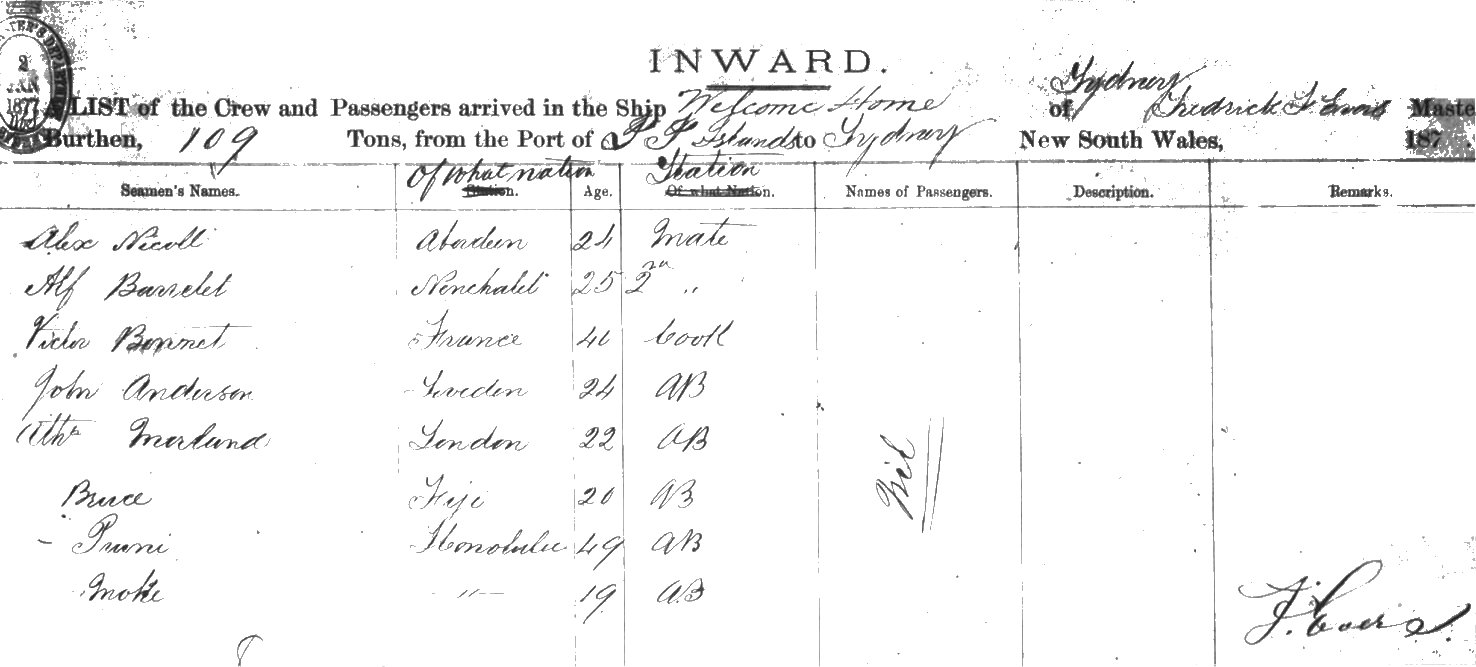 2
JAN
1877
INWARD.
Sydney
A LIST of the Crew and Passengers arrived in the Ship Welcome Home of Fredrick F Evers Maste
Burthen, 109 Tons, from the Port of S S Islands to Sydney New South Wales, 187
Of what nation Station
Seamen's Names. Station. Age. Of what Nation. Names of Passengers. Description. Remarks.
Alex Nicoll Aberdeen 24 Mate
Alf Barrelet 25 2nd "
Victor Bonnet France 40 Cook
John Anderson Sweden 24 AB
Morland London 22 AB
Nil
Bruce Fiji 20 AB
- Pruni Honolulu 49 AB
Moke -"- 19 AB
F. Evers.